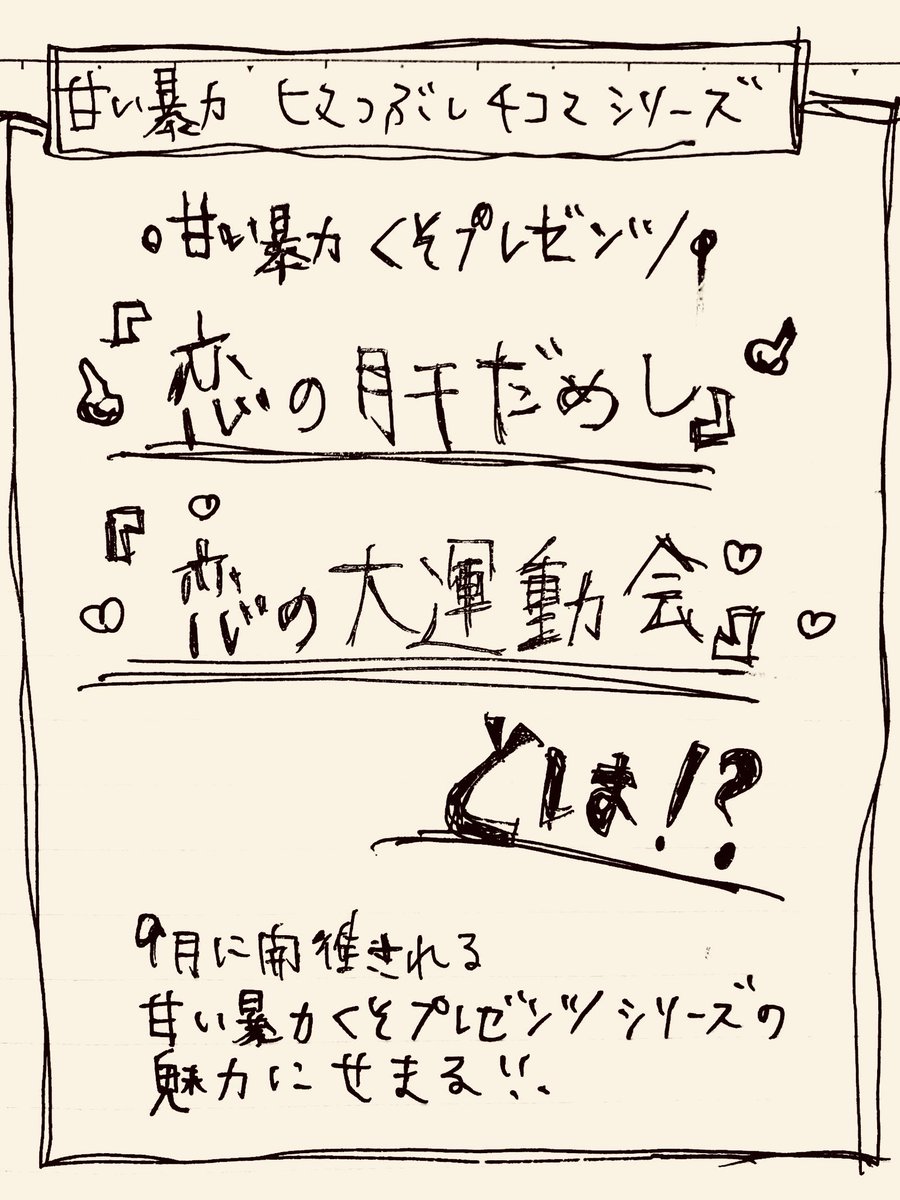 甘い暴力 ヒマつぶし4コマシリーズ
甘い暴力くそプレゼンツ
『恋の肝だめし』
『恋の大運動会』
どしま!?
9月に開催される
甘い暴力くそプレゼンツシリーズの
魅力にせまる!!